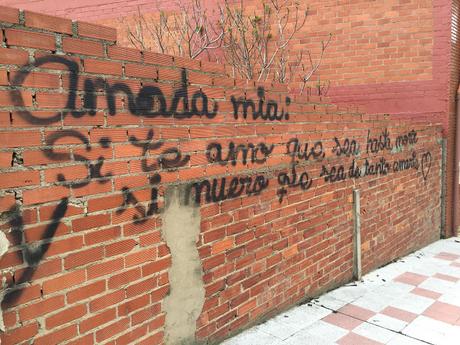 Amada mia:
Si te amo que sea hasta morir
si muero que sea de tanto amarte